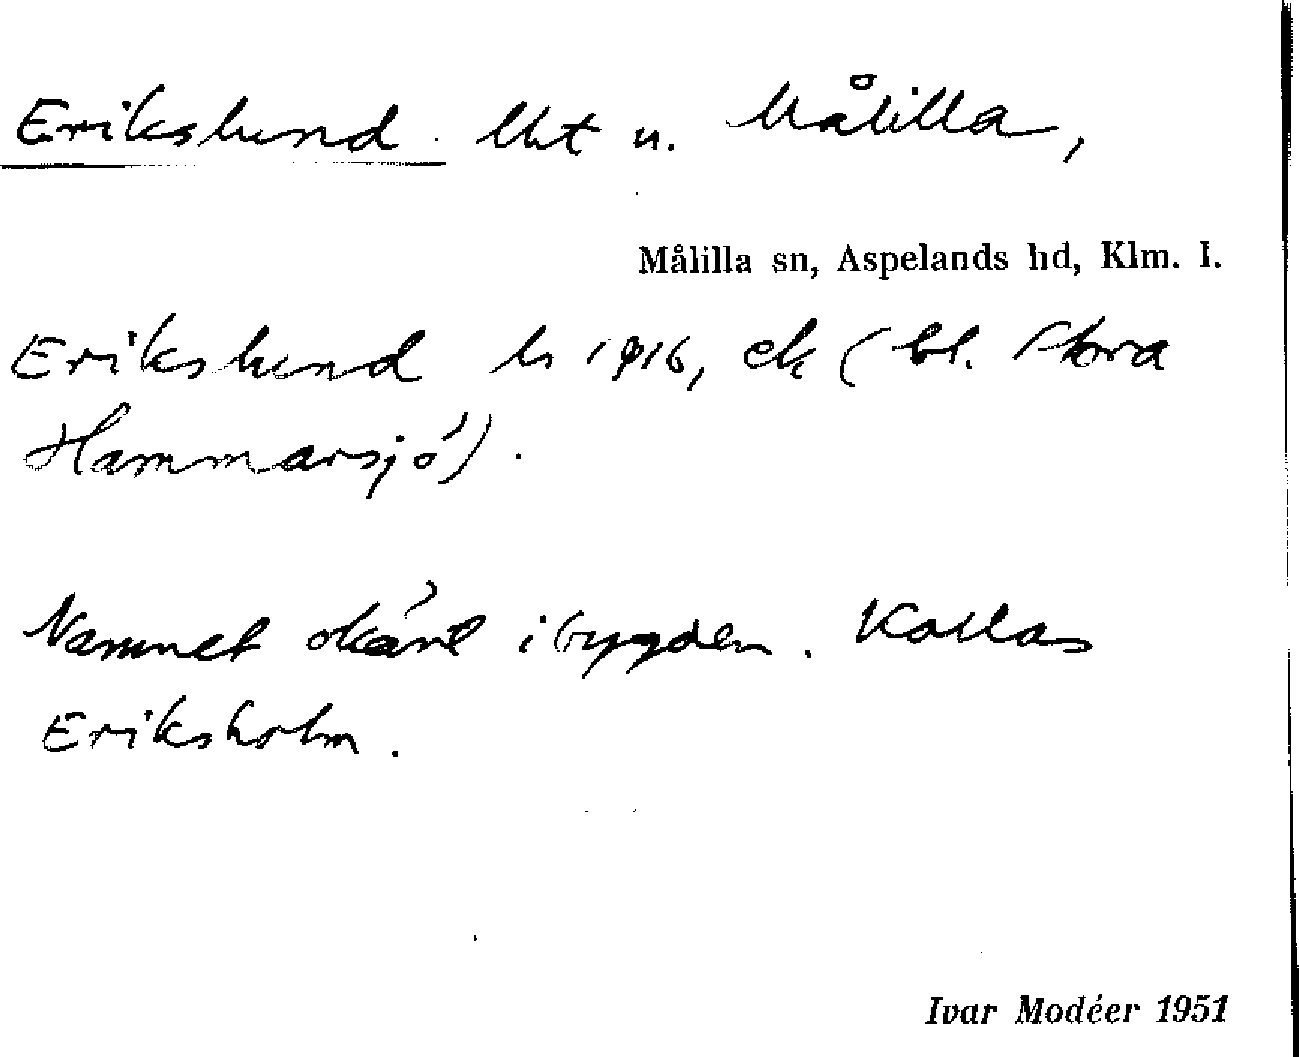 Erikslund. lht u. Målilla,
Målilla sn, Aspelands hd, Klm. l.
Erikslund ls 1916, ek (bl. Stora
Hammarsjö).
Namnet okänt i bygden. Kallas
Eriksholm.
Ivar Modéer 1951